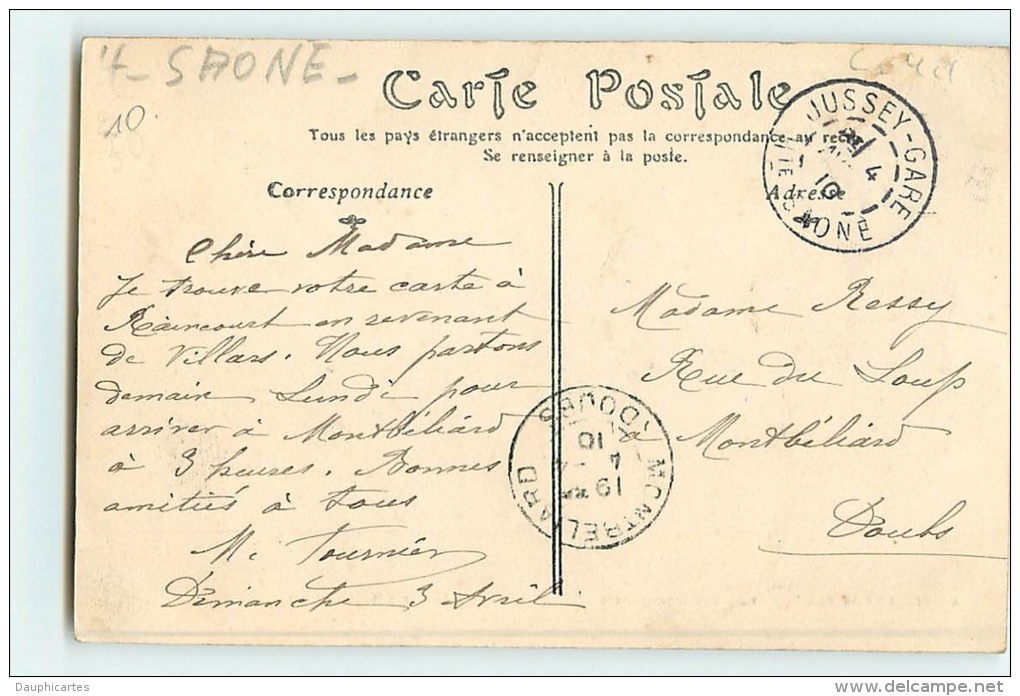 SAONE
10
Carte Postale
Tous les pays étrangers n'acceptent pas la correspondance au recto
Se renseigner à la poste.
JUSSEY-GARE
4
10
HTE SAONE
Correspondance
Adresse
Chère Madame
Je trouve votre carte à
Raincourt en revenant
de Villars. Nous partons
demain Lundi pour
arriver à Montbéliard
à 3 heures. Bonnes
amitiés à tous
M. Tournier
Dimanche 3 Avril.
Madame Ressy
Rue du Loup
à Montbéliard
Doubs
MONTBELIARD
DOUBS
19
4 - 4
10
Dauphicartes
www.delcampe.net